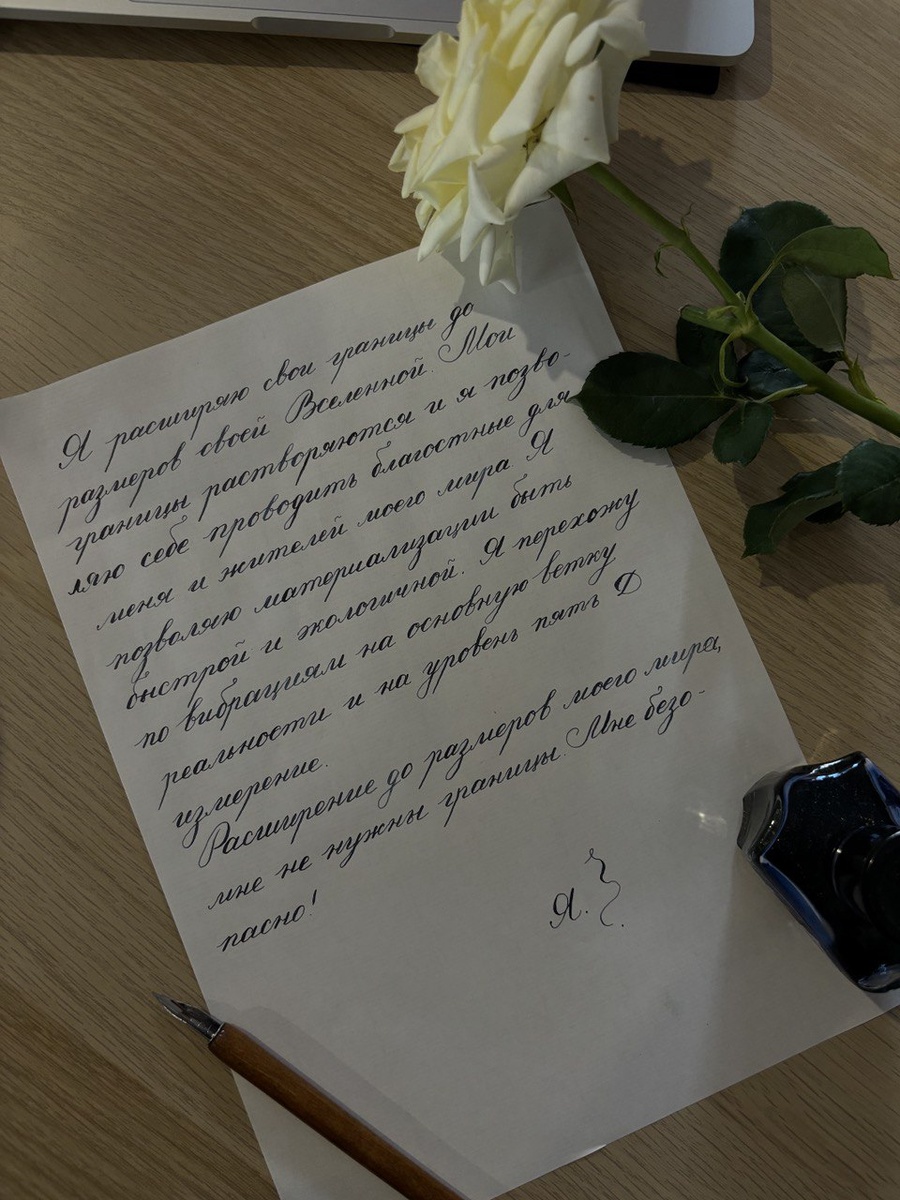 Я расширяю свои границы до
размеров своей Вселенной. Мои
границы растворяются и я позво-
ляю себе проводить благостные для
меня и жителей моего мира. Я
позволяю материализации быть
быстрой и экологичной. Я перехожу
по вибрациям на основную ветку
реальности и на уровень пять D
измерение.
Расширение до размеров моего мира,
мне не нужны границы. Мне безо-
пасно!
Я.